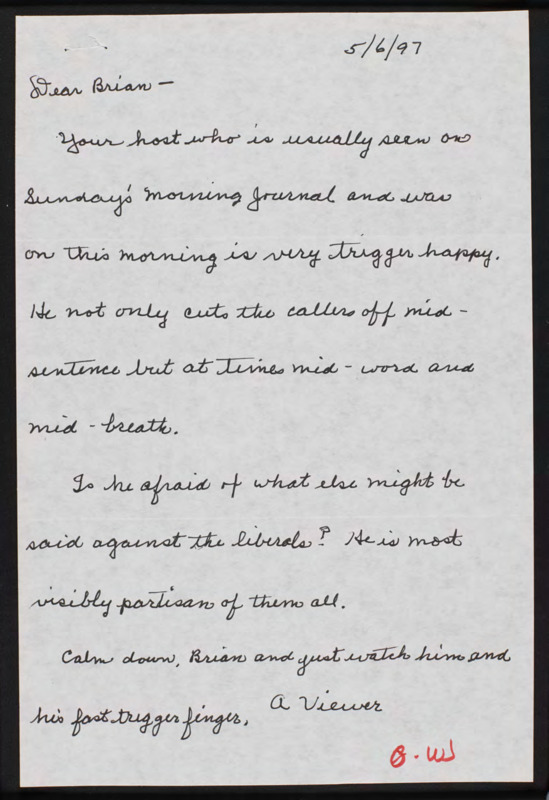 5/6/97
Dear Brian —
Your host who is usually seen on
Sunday's Morning Journal and was
on this morning is very trigger happy.
He not only cuts the callers off mid-
sentence but at times mid-word and
mid-breath.
Is he afraid of what else might be
said against the liberals? He is most
visibly partisan of them all.
Calm down, Brian and just watch him and
his fast trigger finger.
A Viewer
B.W